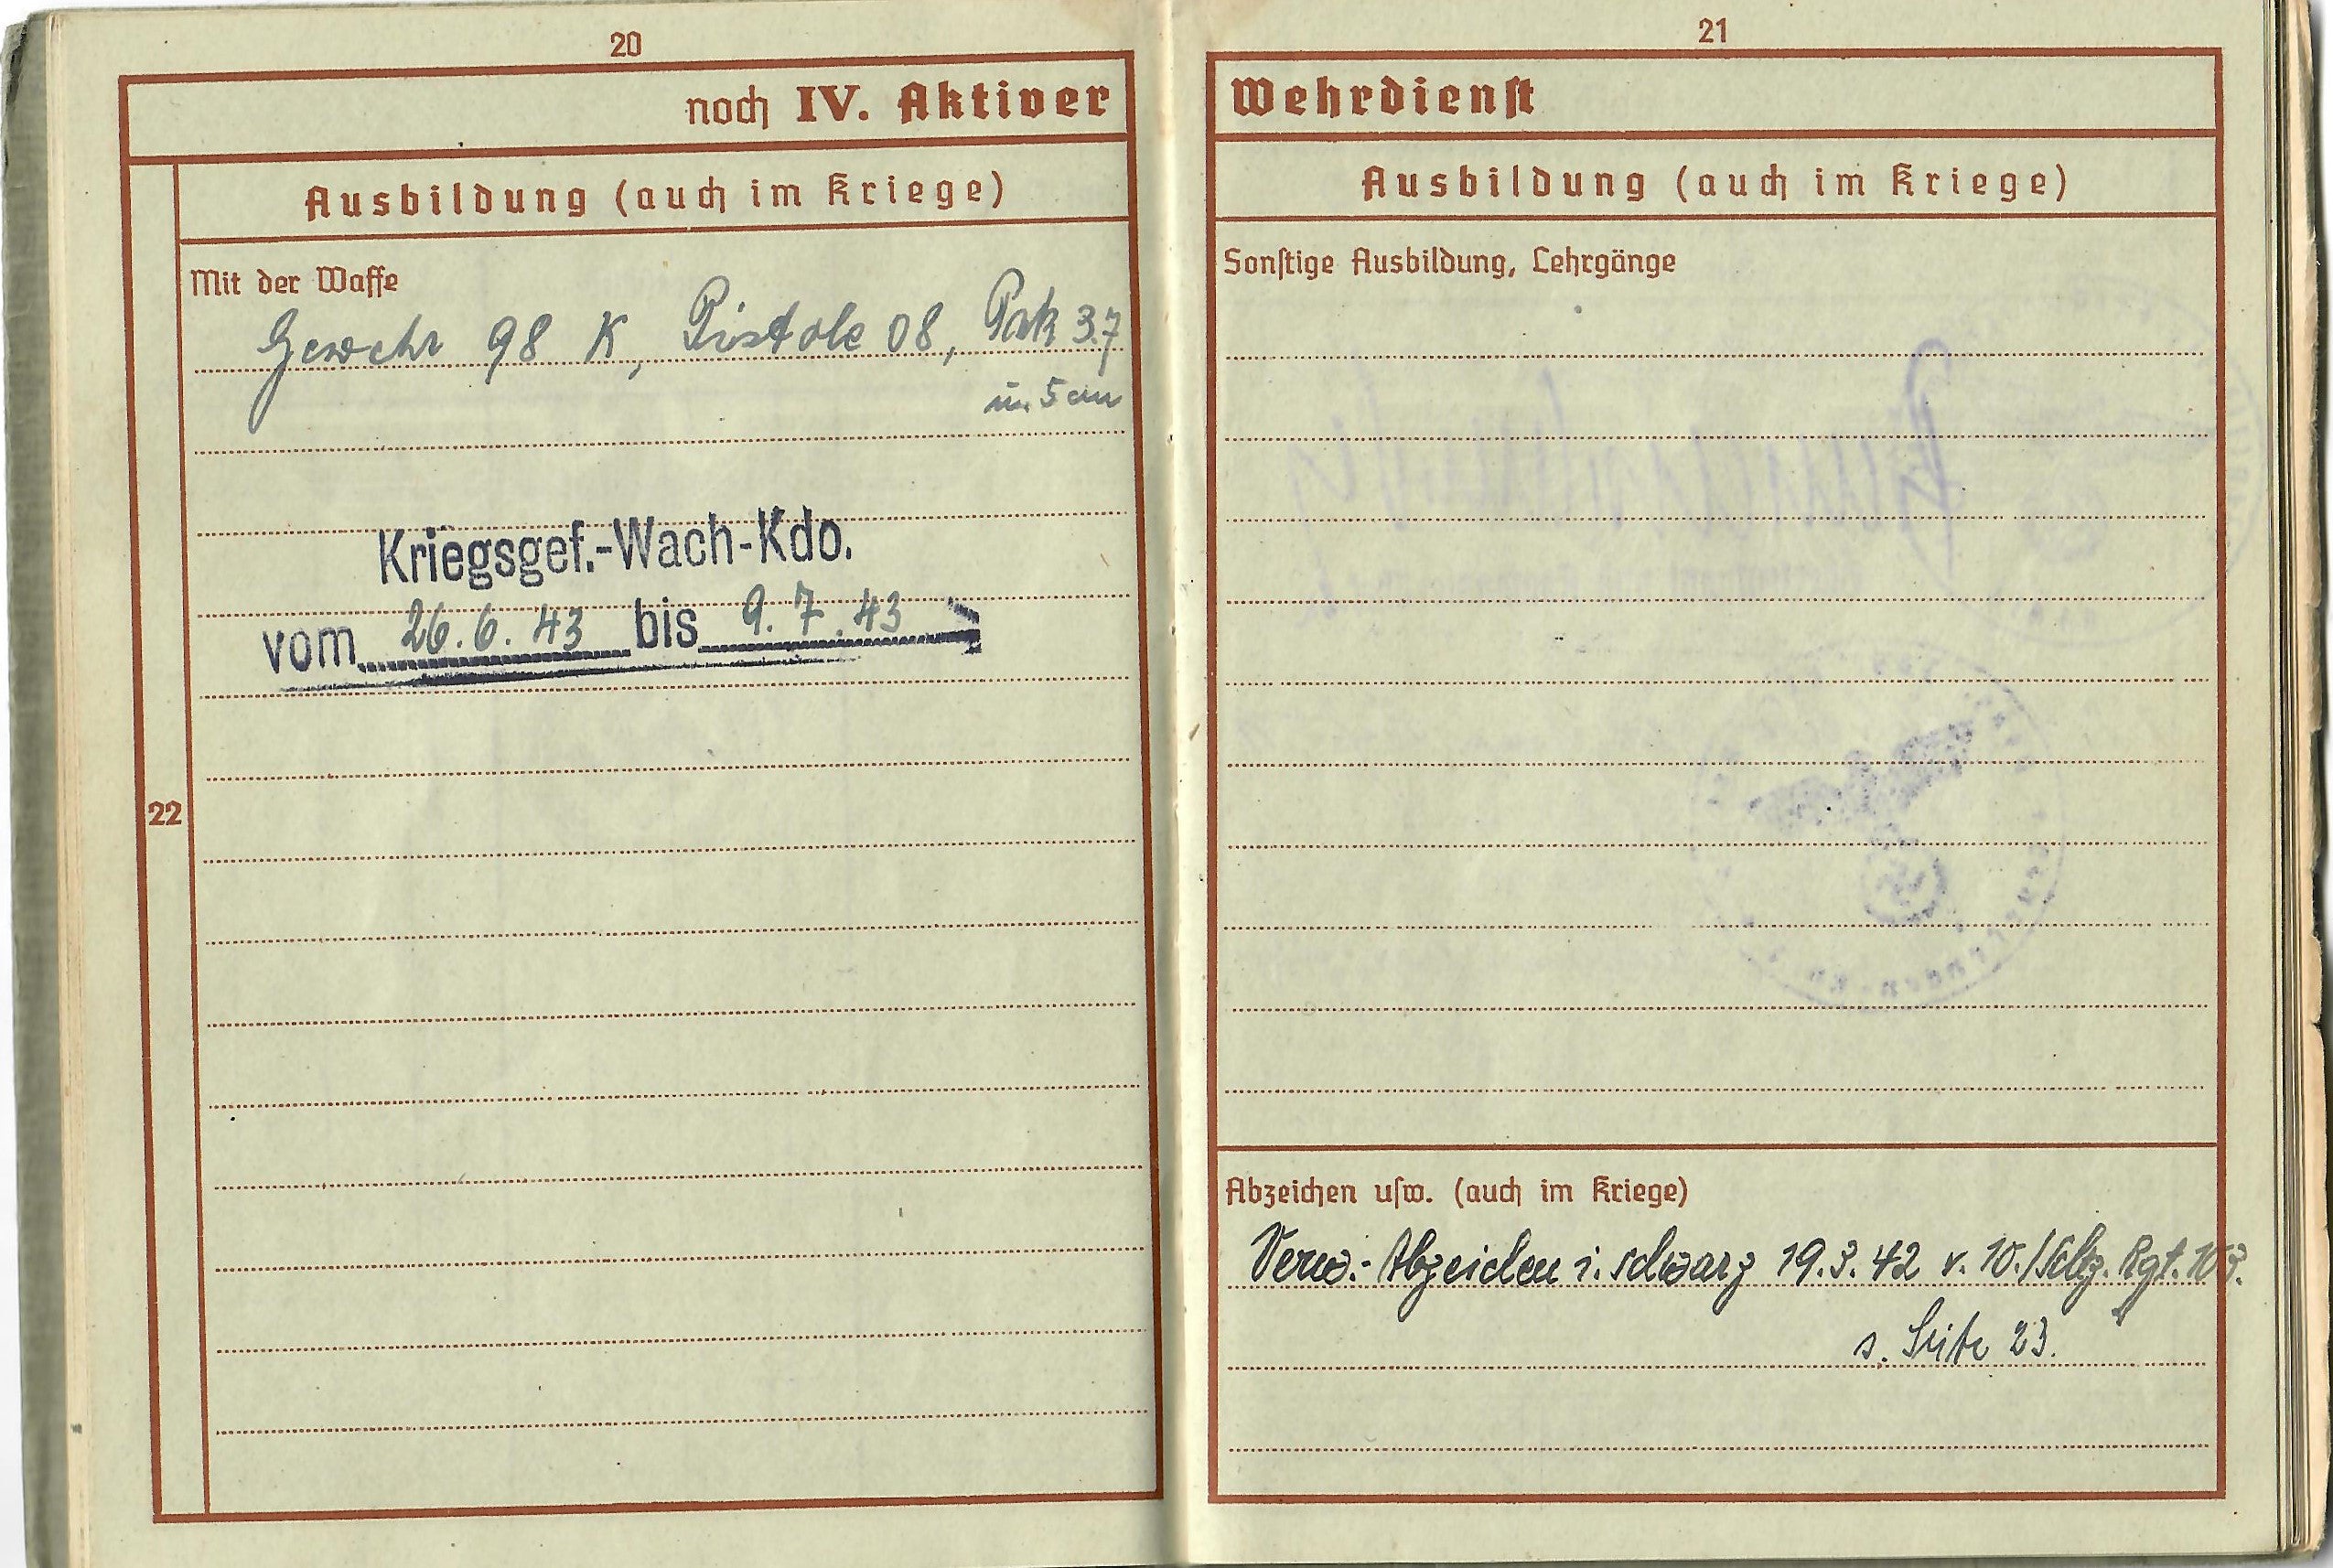 20
noch IV. Aktiver
Ausbildung (auch im Kriege)
22
Mit der Waffe
Gewehr 98 K, Pistole 08, Pak 3.7
u. 5 cm
Kriegsgef.-Wach-Kdo.
vom 26.6.43 bis 9.7.43
21
Wehrdienst
Ausbildung (auch im Kriege)
Sonstige Ausbildung, Lehrgänge
Abzeichen usw. (auch im Kriege)
Verw.-Abzeichen i. schwarz 19.3.42 v. 10./Schtz. Rgt. 103.
s. Seite 23.